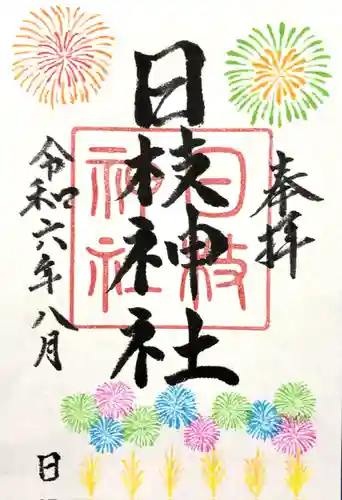 奉拝
日枝神社
日枝神社
令和六年八月
日